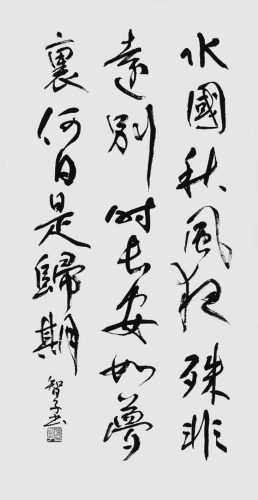 水國秋風夜殊非
遠別時長安如夢
裏何日是歸期
智子书